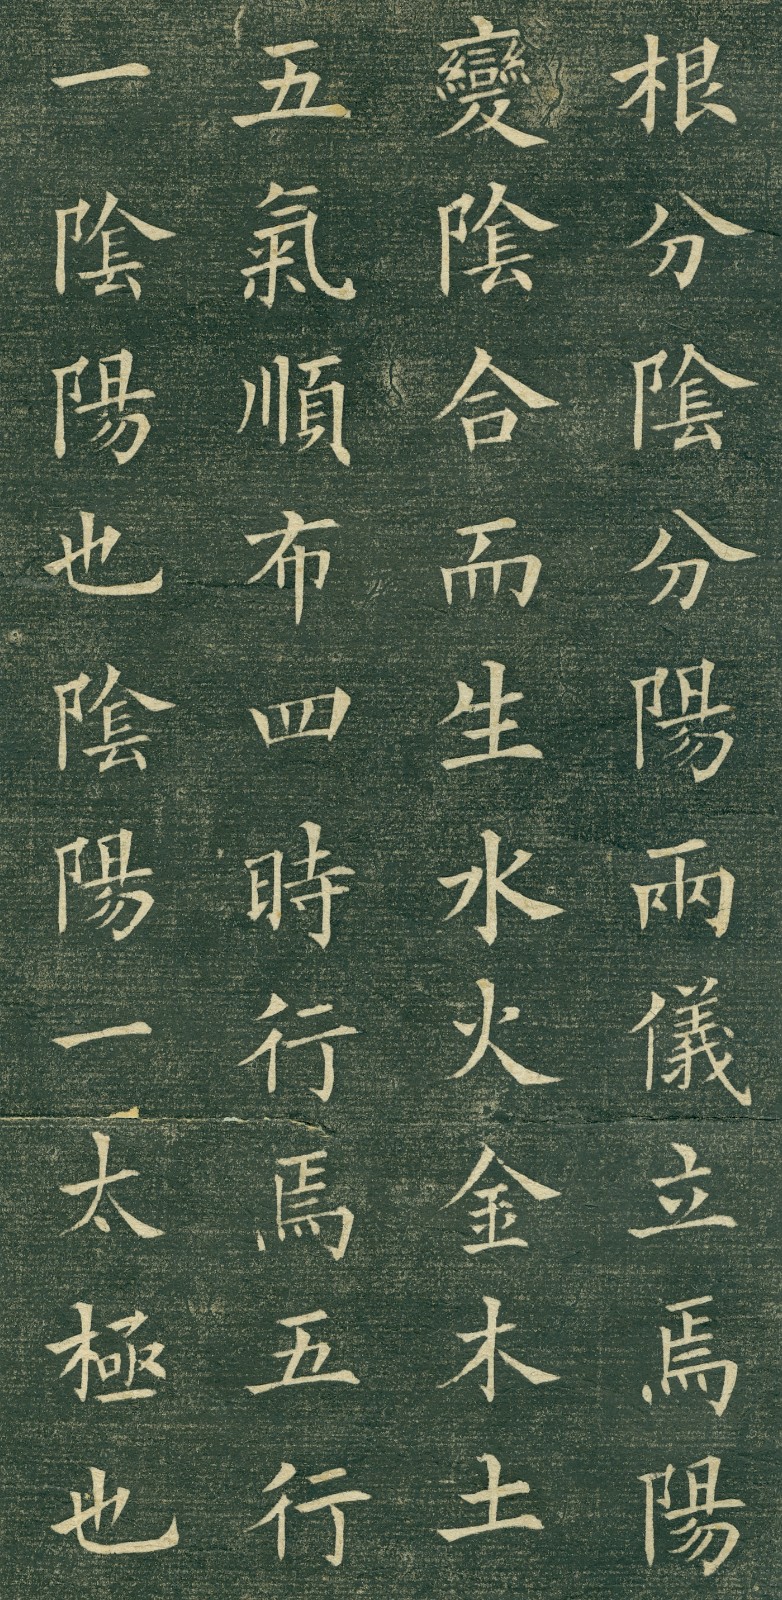 根分陰分陽兩儀立焉陽
變陰合而生水火金木土
五氣順布四時行焉五行
一陰陽也陰陽一太極也